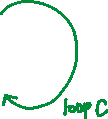 loop C